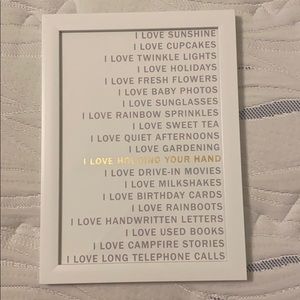 I LOVE SUNSHINE
I LOVE CUPCAKES
I LOVE TWINKLE LIGHTS
I LOVE HOLIDAYS
I LOVE FRESH FLOWERS
I LOVE BABY PHOTOS
I LOVE SUNGLASSES
I LOVE RAINBOW SPRINKLES
I LOVE SWEET TEA
I LOVE QUIET AFTERNOONS
I LOVE GARDENING
I LOVE HOLDING YOUR HAND
I LOVE DRIVE-IN MOVIES
I LOVE MILKSHAKES
I LOVE BIRTHDAY CARDS
I LOVE RAINBOOTS
I LOVE HANDWRITTEN LETTERS
I LOVE USED BOOKS
I LOVE CAMPFIRE STORIES
I LOVE LONG TELEPHONE CALLS